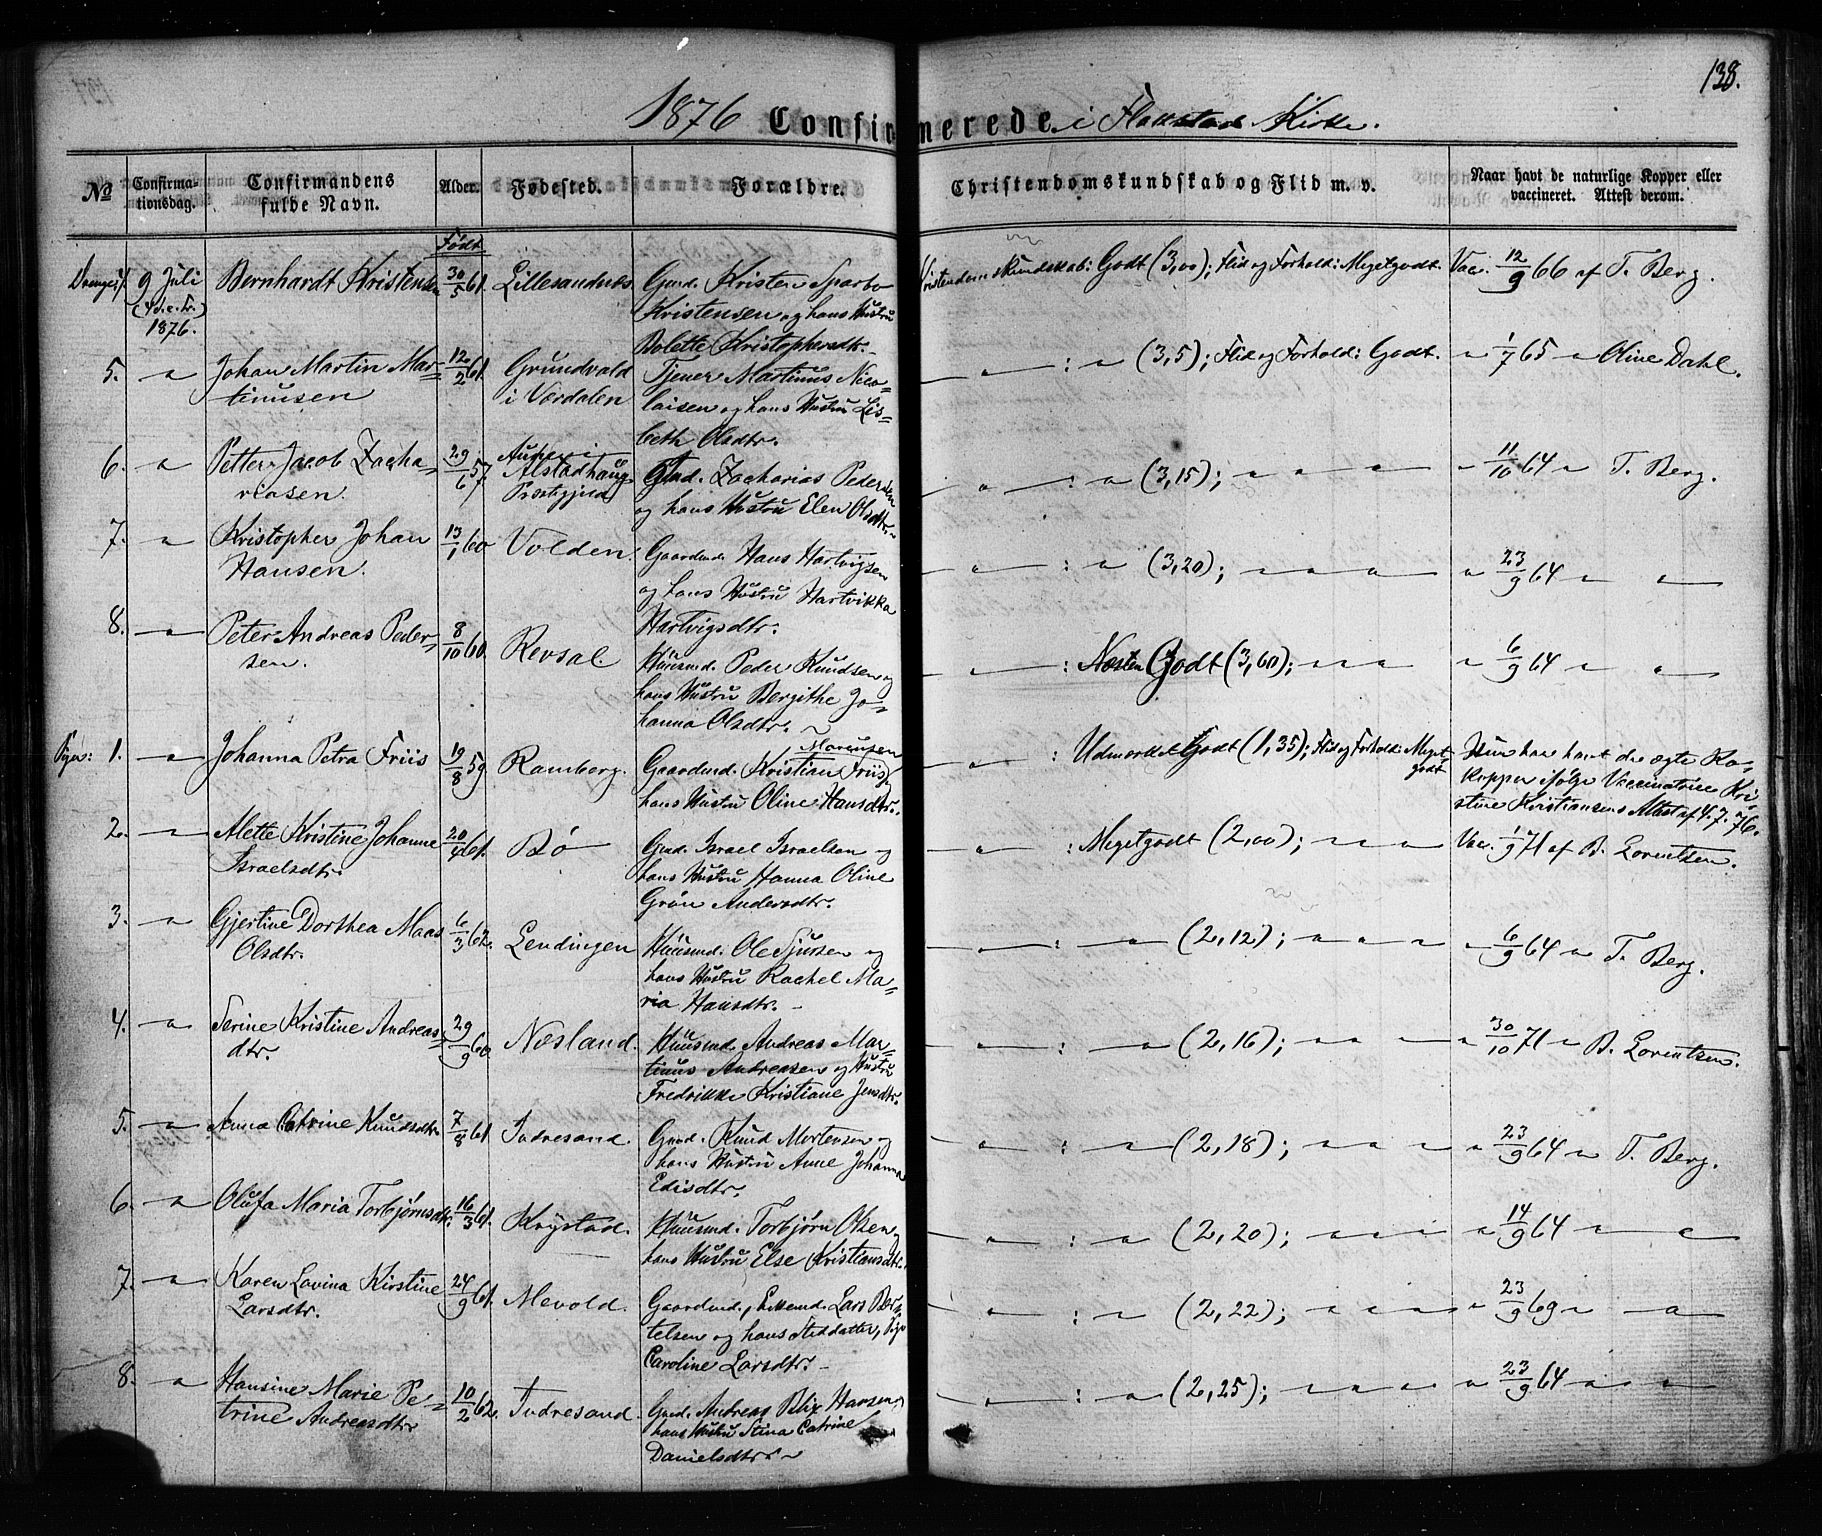 138.
1876 Confirmerede i Flakstad Kirke.
No
Confirma-
tionsdag.
Confirmandens
fulde Navn.
Alder.
Fødested.
Forældre.
Christendomskundskab og Flid m. v.
Naar havt de naturlige Kopper eller
vaccineret. Attest derom.
Født
9 Juli
1876.
Bernhardt Kristensen
30/5 61.
Lillesandnes
Gmd. Kristen Sparbo
Kristensen og hans Hustru
Bolette Kristophersdtr.
Kristendomskundskab: Godt (3,00); Flid og Forhold: Megetgodt.
Vac. 12/9 66 af T. Berg.
5. — " Johan Martin Mar-
tinusen
12/2 61.
Grundvald
i Værdalen
Tjener Martinus Nico-
laisen og hans Hustru Lis-
beth Olsdtr.
— " — : " (3,5); Flid og Forhold: Godt.
" 1/7 65 " Oline Dahl.
6. " Petter Jacob Zacha-
riasen.
29/6 57.
Alstadhaug
Præstegjeld
Gmd. Zacharias Pedersen
og hans Hustru Elen Olsdtr.
— " — : " (3,15); — " — " — "
" 11/10 64 " T. Berg.
7. " Kristopher Johan
Hansen.
13/1 60
Volden.
Gaardmd. Hans Hartvigsen
og hans Hustru Hartvikka
Hartvigsdtr.
— " — : " (3,20); — " — " — "
" 23/9 64 " "
8. — " Peter Andreas Peder-
sen.
8/10 60.
Revsal.
Huusmd. Peder Knudsen og
hans Hustru Bergithe Jo-
hanna Olsdtr.
— " — : Næsten Godt (3,60); — " — "
" 6/9 64 " "
Piger: 1. — " Johanna Petra Friis
19/8 59
Ramberg.
Marensen
Gaardmd. Kristian Friis,
hans Hustru Oline Hansdtr.
— " — : Udmærket Godt (1,35); Flid og Forhold: Meget
godt
Hun har havt de ægte Ko-
kopper ifølge Vaccinatrice Kri-
stine Kristiansens Attest af 4.7.76.
2. — " Alette Kristine Johanne
Israelsdtr.
20/4 61.
Bø
Gmd. Israel Israelsen og
hans Hustru Hanna Oline
Grøn Andersdtr.
— " — : Megetgodt (2,00); — " — "
Vac. 1/9 71 af B. Lorentsen.
3. — " Gjertine Dorthea Maas
Olsdtr.
6/3 62.
Lendingen
Huusmd. Ole Sjursen og
hans Hustru Rachel Ma-
ria Hansdtr. -
— " — : — " (2,12); — " — " — "
" 6/9 64 " T. Berg.
4. — " Serine Kristine Andreas-
dtr.
29/9 60
Næsland.
Huusmd. Andreas Mar-
tinus Andreasen og Hustru
Fredrikke Kristiane Jensdtr.
— " — : — " (2,16); — " — " — "
" 30/10 71 " B. Lorentsen.
5. — " Anna Catrine Knudsdtr.
7/8 61.
Indresand.
Gmd. Knud Mortensen og
hans Hustru Anne Johanna
Edisdtr.
— " — : — " (2,18); — " — " — "
" 23/9 64 " T. Berg.
6. — " Olufa Maria Torbjørnsdtr.
16/3 61.
Krystad.
Huusmd. Torbjørn Olsen og
hans Hustru Else Kristiansdtr.
— " — : — " (2,20); — " — " — "
" 14/9 64 " "
7. — " Karen Lovina Kirstine
Larsdtr.
24/9 61.
Mevold.
Gaardmd., Enkemd. Lars Ber-
telsen og hans Steddatter, Pige
Caroline Larsdtr. -
— " — : — " (2,22); — " — " — "
" 23/9 69 " "
8. — " Hansine Marie Pe-
trine Andreasdtr.
10/2 62.
Indresand.
Gmd. Andreas Blix Hansen,
hans Hustru Stina Catrine
Danielsdtr.
— " — : — " (2,25); — " — " — "
" 23/9 64 " "